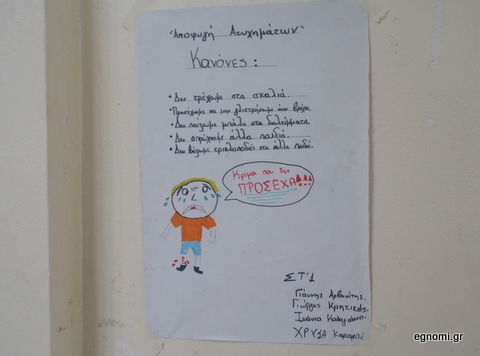 "Αποφυγή Ατυχημάτων"
Κανόνες:
• Δεν τρέχουμε στα σκαλιά.
• Προσέχουμε να μην γλιστρήσουμε όταν βρέχει.
• Δεν παίζουμε μπάλα στα διαλείμματα.
• Δεν σπρώχνουμε άλλα παιδιά.
• Δεν βάζουμε τρικλοποδιές στα άλλα παιδιά.
Κρίμα που δεν
ΠΡΟΣΕΧΑ!!!
ΣΤ'1
Γιάννης Αρβανίτης.
Γιώργος Κρητικός.
Ιωάννα
ΧΡΥΣΑ
egnomi.gr